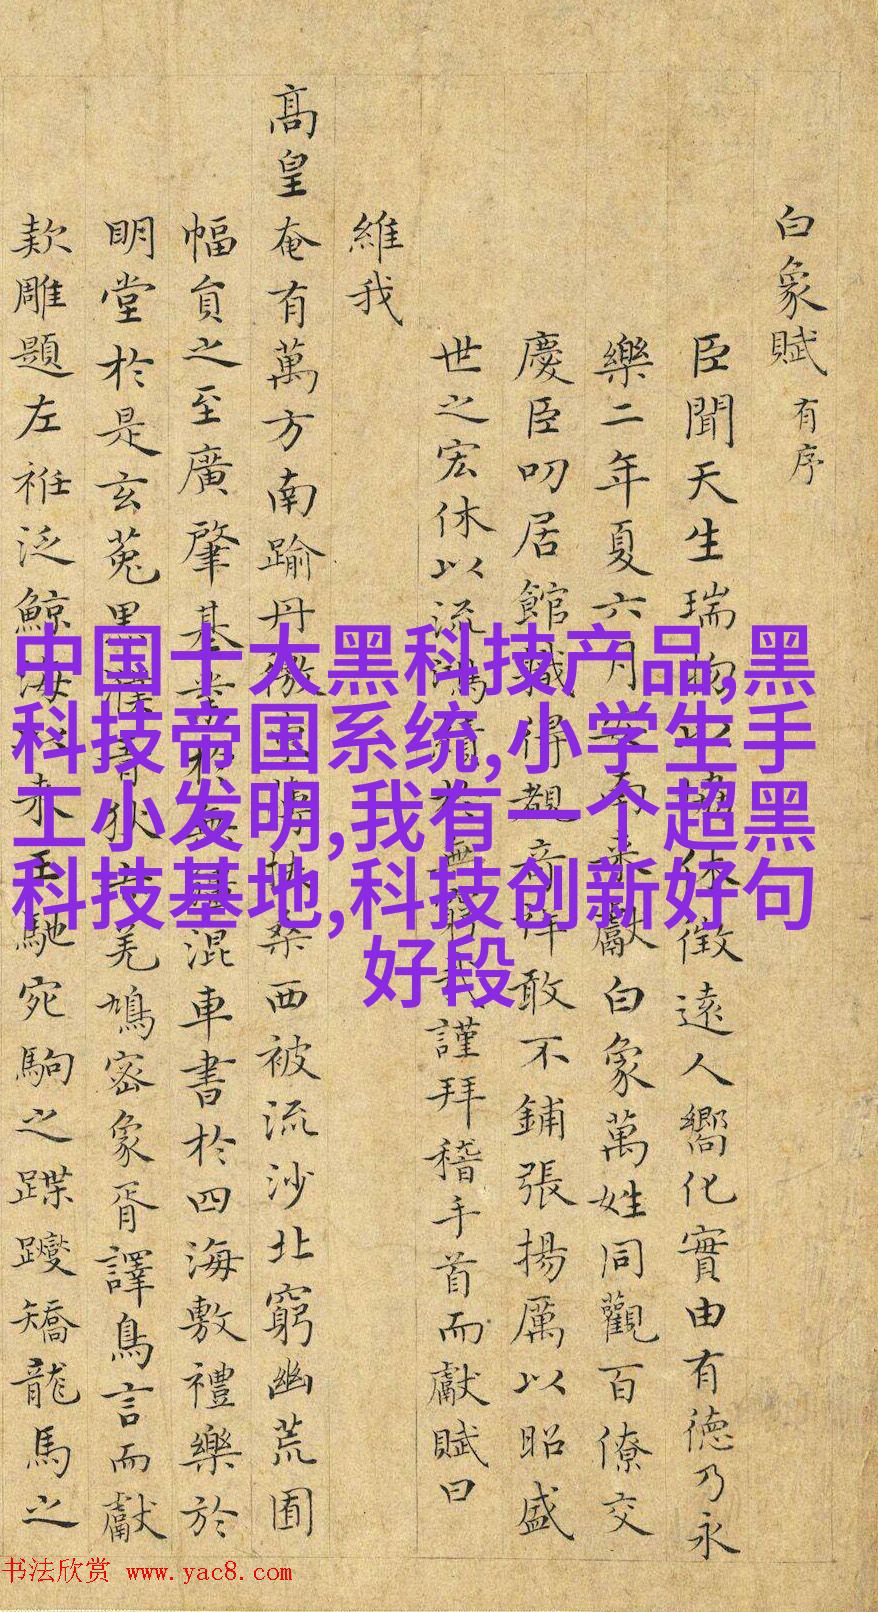 白象賦有序
臣聞天生瑞物以協休徵遠人嚮化實由有德乃永
樂二年夏六月安南來獻白象萬姓同觀百僚交
慶臣叨居館職得覩奇祥敢不鋪張揚厲以昭盛
世之宏休以流
謹拜稽手首而獻賦曰
維我
高皇奄有萬方南踰丹徼東
西被流沙北窮幽荒圃
幅員之至廣肇基
混車書於四海敷禮樂於
明堂於是玄菟黑
羌鳩密象胥譯鳥言而獻
款雕題左袵泛鯨海
來王馳宛駒之蹀躞矯龍馬之
中国十大黑科技产品,黑
科技帝国系统,小学生手
工小发明,我有一个超黑
科技基地,科技创新好句
好段
书法欣赏 www.yac8.com